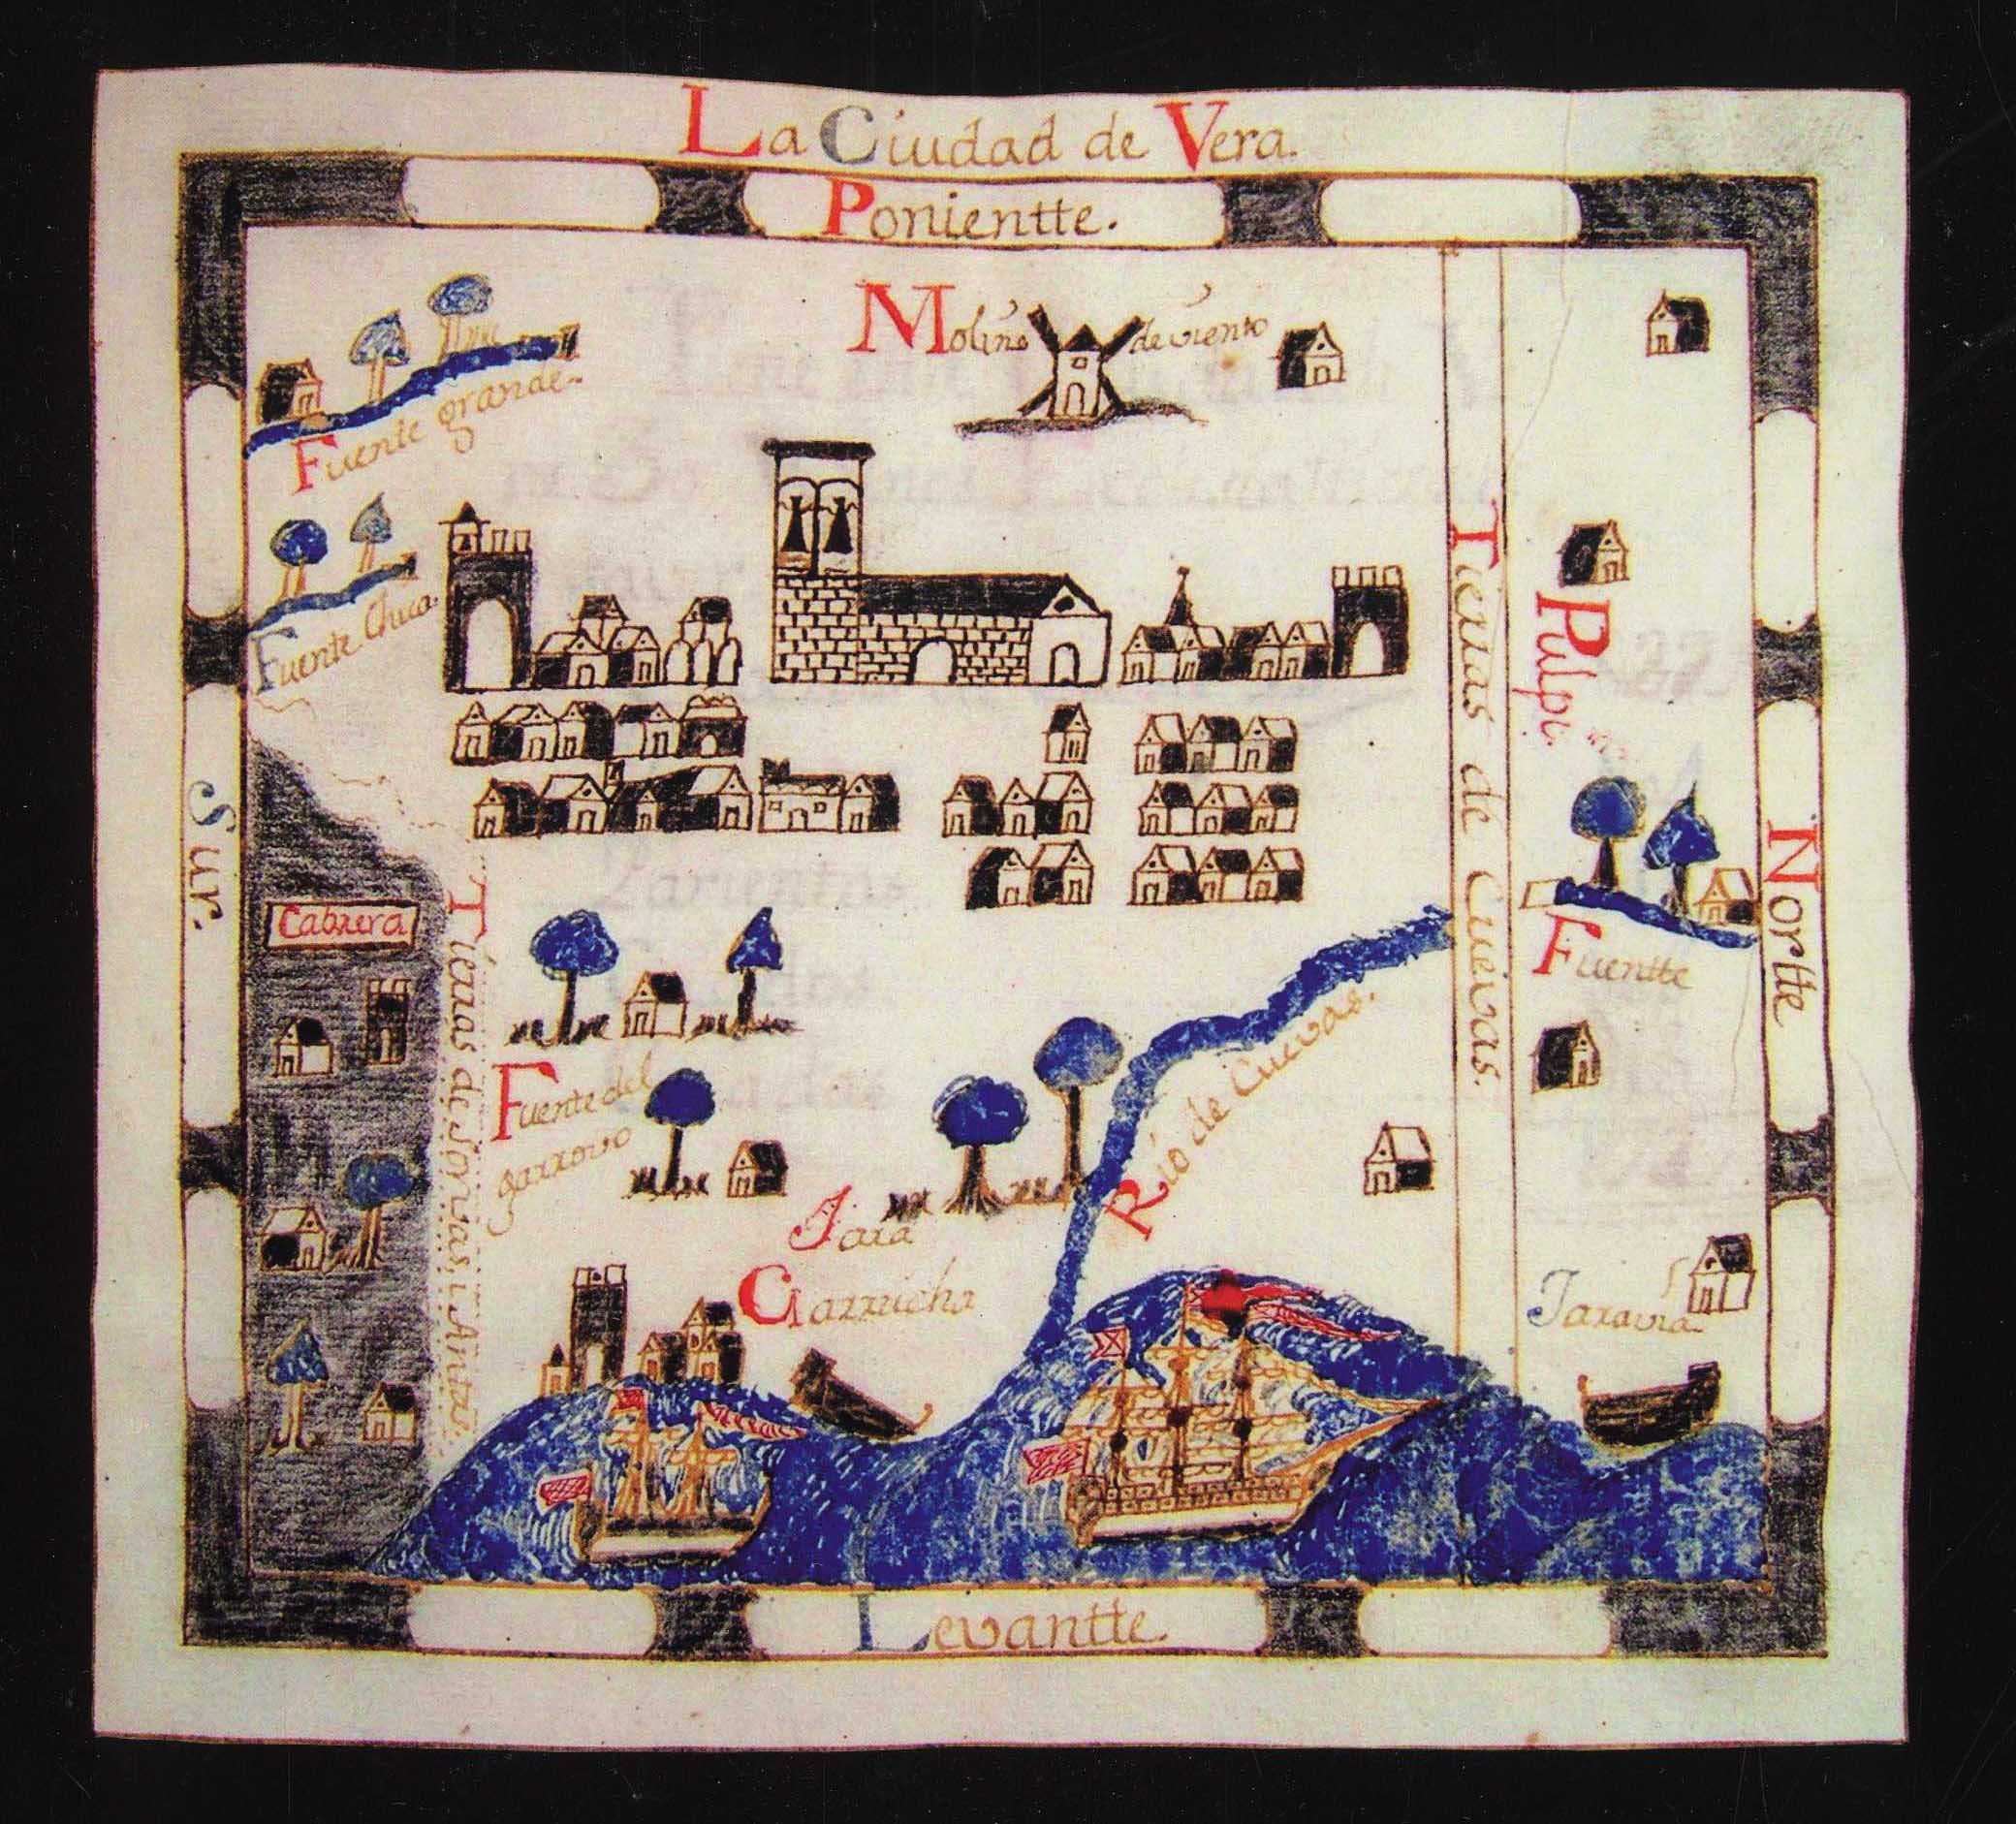 La Ciudad de Vera.
Ponientte.
Molino de viento
Fuente grande
Fuente Chica.
Sur.
Cabrera
Tierras de Sorvas, i Antas.
Fuente del
garrovo
Jara
Garrucha
Rio de Cuevas.
Tierras de Cuevas.
Pulpi.
Fuentte
Nortte
Jaravia
Levantte.